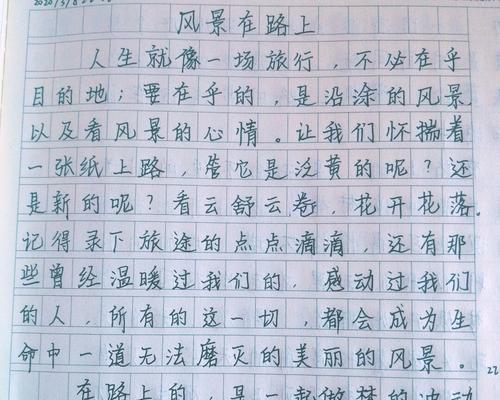 风景在路上
人生就像一场旅行，不必在乎
目的地；要在乎的，是沿涂的风景
以及看风景的心情。让我们怀揣着
一张纸上路，管它是泛黄的呢？还
是新的呢？看云舒云卷，花开花落。
记得录下旅途的点点滴滴，还有那
些曾经温暖过我们的，感动过我们
的人，所有的这一切，都会成为生
命中一道无法磨灭的美丽的风景。
22
在路上的，是一起做梦的冲动